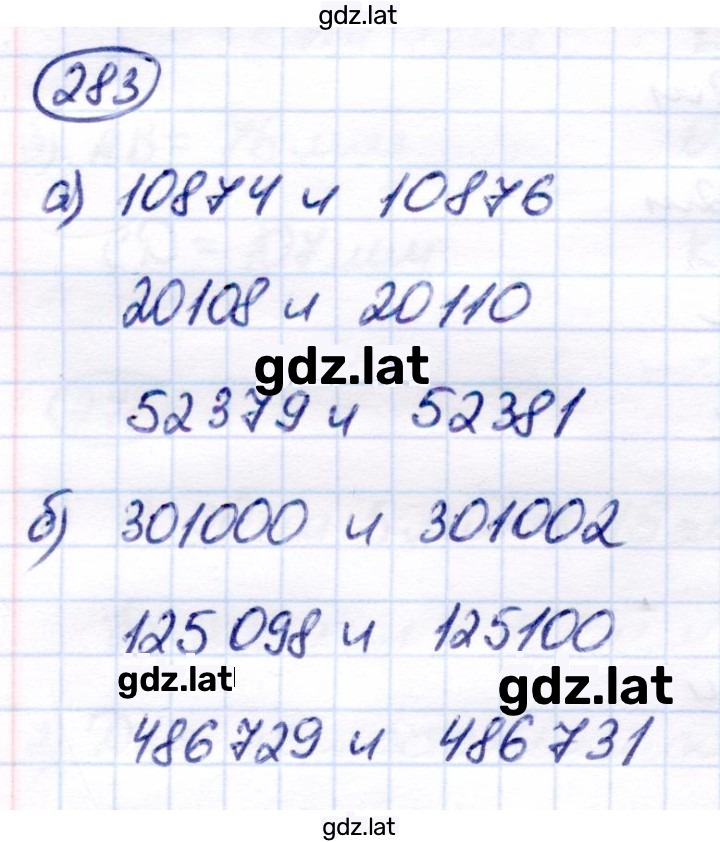 gdz.lat
283
а) 10874 и 10876
20108 и 20110
gdz.lat
52379 и 52381
б) 301000 и 301002
125 098 и 125100
gdz.lat
gdz.lat
486 729 и 486 731
gdz.lat